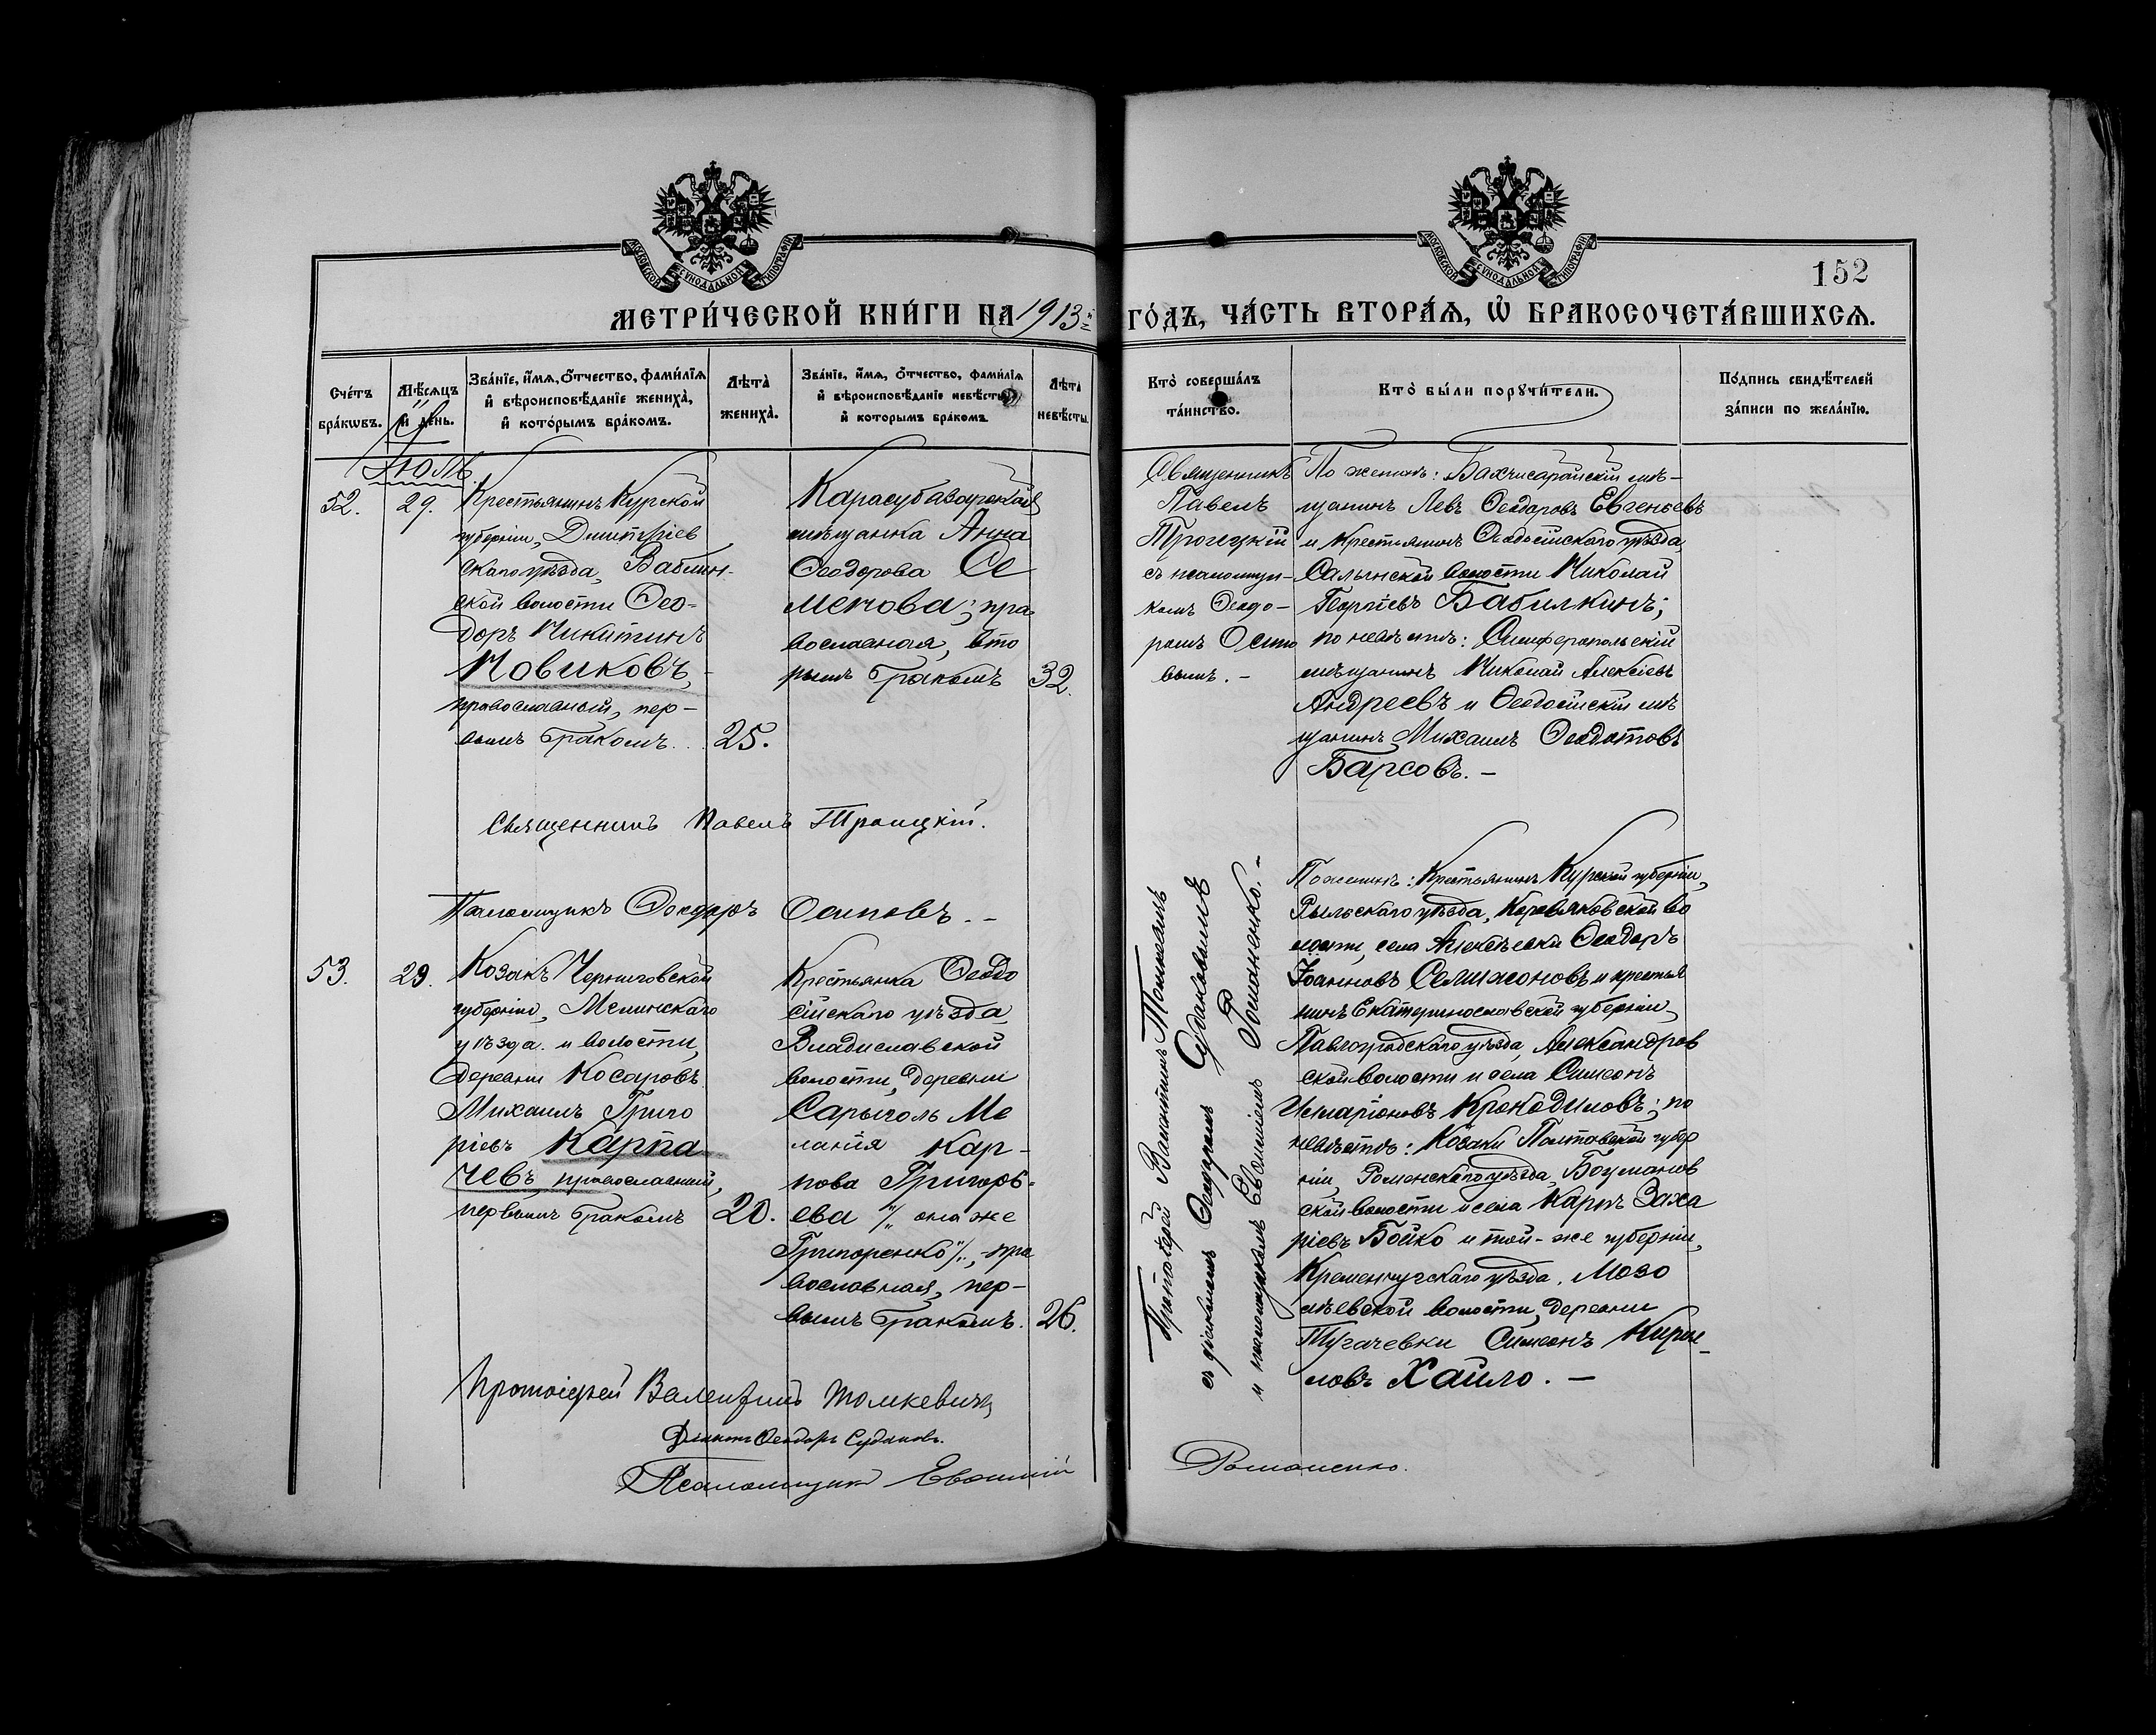 МОСКОВСКОЙ СѴНОДАЛЬНОЙ ТИПОГРАФІИ
МОСКОВСКОЙ СѴНОДАЛЬНОЙ ТИПОГРАФІИ
152
МЕТРИ́ЧЕСКОЙ КНИ́ГИ НА 1913й
ГО́ДЪ, ЧА́СТЬ ВТОРА́Ѧ, Ѿ БРАКОСОЧЕТА́ВШИХСѦ.
Сче́тъ
бра́кѡвъ.
Мѣ́сѧцъ
и҆ де́нь.
Зва́нїе, и҆́мѧ, ѻ҆́тчество, фами́лїѧ
и҆ вѣроисповѣ́данїе жениха̀,
и҆ кото́рымъ бра́комъ.
Лѣ́та̀
жениха̀.
Зва́нїе, и҆́мѧ, ѻ҆́тчество, фами́лїѧ
и҆ вѣроисповѣ́данїе невѣ́сты
и҆ кото́рымъ бра́комъ.
Лѣ́та
невѣ́сты.
Кто̀ соверша́лъ
та́инство.
Кто̀ бы́ли порꙋчи́тели.
По́дпись свидѣ́телей
за́писи по жела́нїю.
Іюль
52.
29.
Крестьянинъ Курской
губерніи, Дмитріев
скаго уѣзда, Ваблин-
ской волости Ѳео-
доръ Никитинъ
Новиковъ,
православный, пер-
вымъ бракомъ.
25.
Карасубазарская
мѣщанка Анна
Ѳеодорова Се
менова; пра
вославная, вто
рымъ бракомъ
32.
Священникъ
Павелъ
Троицкій
съ псаломщи-
комъ Ѳеодо-
ромъ Осипо
вымъ. -
По женихѣ: Бахчисарайскій мѣ-
щанинъ Левъ Ѳеодоровъ Евгеньевъ
и крестьянинъ Ѳеодосійскаго уѣзда,
Салынской волости Николай
Георгіевъ Бабилкинъ;
по невѣстѣ: Симферопольскій
мѣщанинъ Николай Алексіевъ
Андреевъ и Ѳеодосійскій мѣ
щанинъ Михаилъ Ѳеодотовъ
Барсовъ. -
Священникъ Павелъ Троицкій.
Псаломщикъ Ѳеодоръ Осиповъ. -
53.
29.
Козакъ Черниговской
губерніи, Менинскаго
уѣзда и волости,
деревни Косаровъ
Михаилъ Григо
ріевъ Карпа
чевъ, православный,
первымъ бракомъ
20.
Крестьянка Ѳеодо
сійскаго уѣзда,
Владиславской
волости, деревни
Сарыголь Ме
ланія Кар-
пова Григорь-
ева "/ она же
Григоренко"/., пра
вославная, пер-
вымъ бракомъ.
26.
Протоіерей Валентинъ Томкевичъ
съ діакономъ Ѳеодоромъ Судаковымъ
и псаломщикомъ Евѳиміемъ Романенко. -
По женихѣ: Крестьянинъ Курской губерніи,
Рыльскаго уѣзда, Коровяковской во
лости, села Алексѣевки Ѳеодоръ
Іоанновъ Селихоновъ и крестья
нинъ Екатеринославской губерніи,
Павлоградскаго уѣзда, Александров
ской волости и села Симеонъ
Иларіоновъ Крокодиловъ; по
невѣстѣ: Козаки Полтавской губер
ніи, Роменскаго уѣзда, Бацманов
ской волости и села Карпъ Заха
ріевъ Бойко и той-же губерніи,
Кременчугскаго уѣзда, Мозо
лѣевской волости, деревни
Тугачевки Симеонъ Кирил
ловъ Хайло. -
Протоіерей Валентинъ Томкевичъ
Діаконъ Ѳеодоръ Судаковъ.
Псаломщикъ Евѳимій
Романенко.